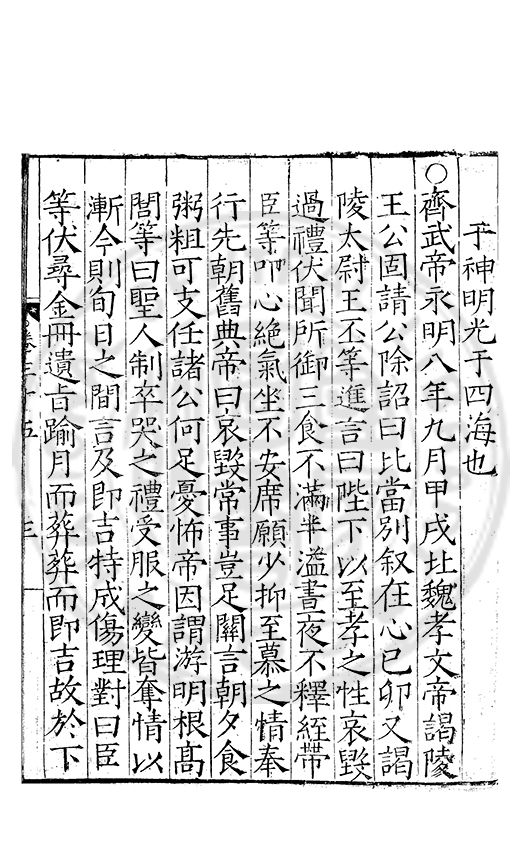 于神明光于四海也
○齊武帝永明八年九月甲戌北魏孝文帝謁陵
王公固請公除詔曰比當別叙在心已卯又謁
陵太尉王丕等進言曰陛下以至孝之性哀毀
過禮伏聞所御三食不滿半溢晝夜不釋絰帶
臣等叩心絶氣坐不安席願少抑至慕之情奉
行先朝舊典帝曰哀毀常事豈足關言朝夕食
粥粗可支任諸公何足憂怖帝因謂游明根髙
閭等曰聖人制卒哭之禮受服之變皆奪情以
漸今則旬日之間言及即吉特成傷理對曰臣
等伏尋金冊遺㫖踰月而葬葬而即吉故於下
卷三十五
三